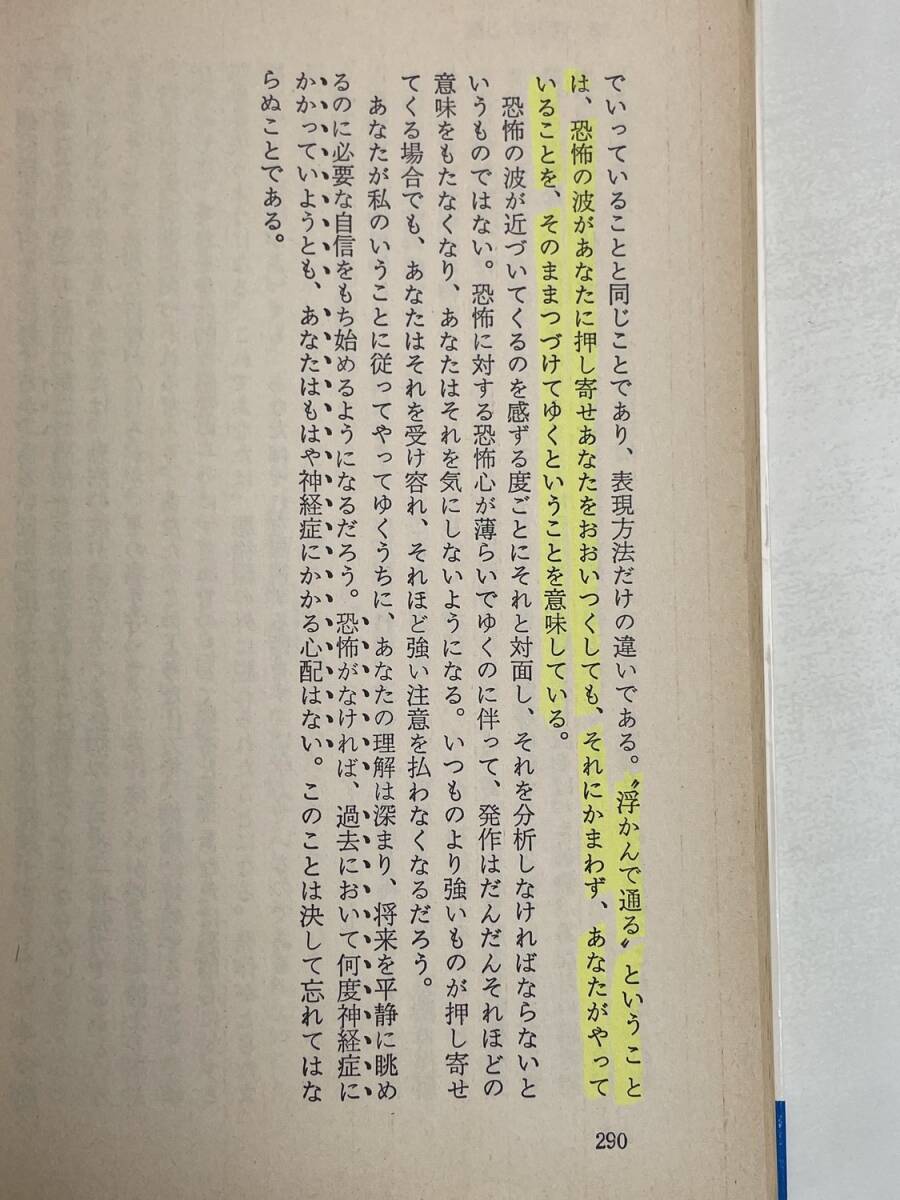 でいっていることと同じことであり、表現方法だけの違いである。〝浮かんで通る〟ということ
は、恐怖の波があなたに押し寄せあなたをおおいつくしても、それにかまわず、あなたがやって
いることを、そのままつづけてゆくということを意味している。
恐怖の波が近づいてくるのを感ずる度ごとにそれと対面し、それを分析しなければならないと
いうものではない。恐怖に対する恐怖心が薄らいでゆくのに伴って、発作はだんだんそれほどの
意味をもたなくなり、あなたはそれを気にしないようになる。いつものより強いものが押し寄せ
てくる場合でも、あなたはそれを受け容れ、それほど強い注意を払わなくなるだろう。
あなたが私のいうことに従ってやってゆくうちに、あなたの理解は深まり、将来を平静に眺め
るのに必要な自信をもち始めるようになるだろう。恐怖がなければ、過去において何度神経症に
かかっていようとも、あなたはもはや神経症にかかる心配はない。このことは決して忘れてはな
らぬことである。
290